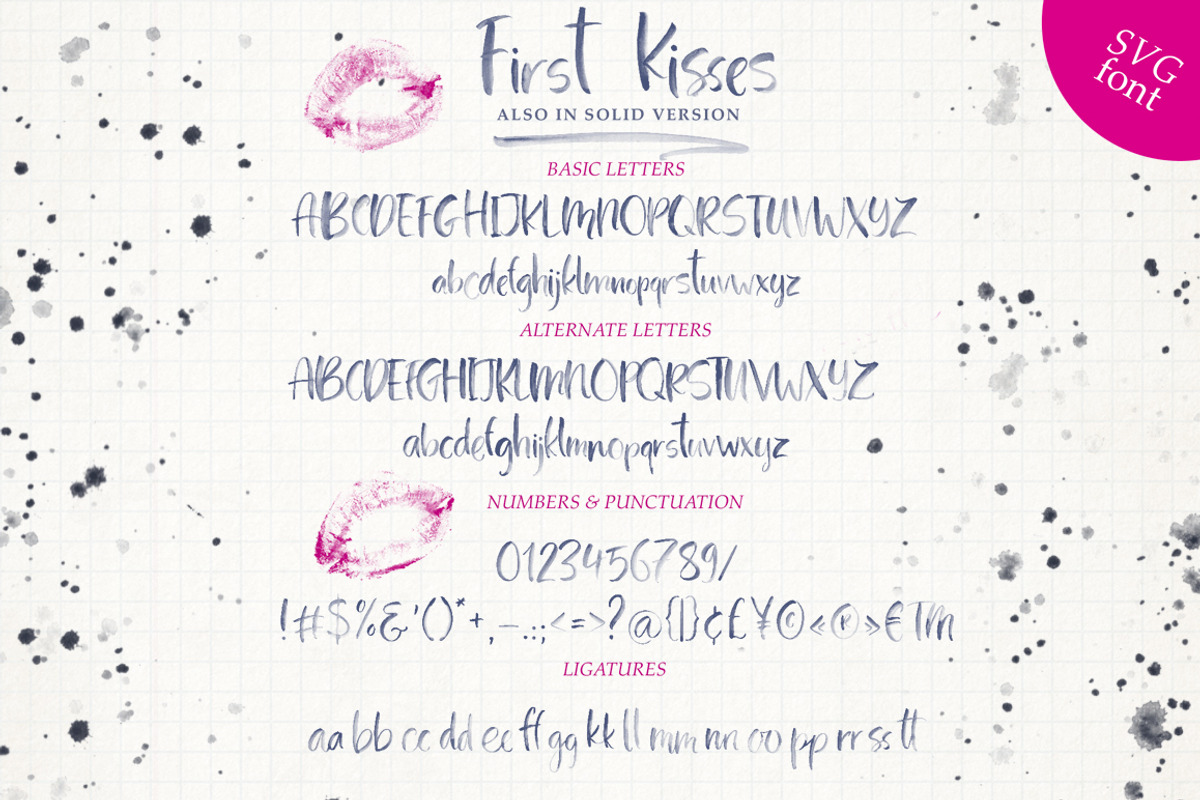 First Kisses
SVG
font
ALSO IN SOLID VERSION
BASIC LETTERS
ABCDEFGHIJKLMNOPQRSTUVWXYZ
abcdefghijklmnopqrstuvwxyz
ALTERNATE LETTERS
ABCDEFGHIJKLMNOPQRSTUVWXYZ
abcdefghijklmnopqrstuvwxyz
NUMBERS & PUNCTUATION
0123456789/
!#$%&'()*+,-.:;<=>?@{|}¢£¥©«®»€TM
LIGATURES
aa bb cc dd ee ff gg kk ll mm nn oo pp rr ss tt